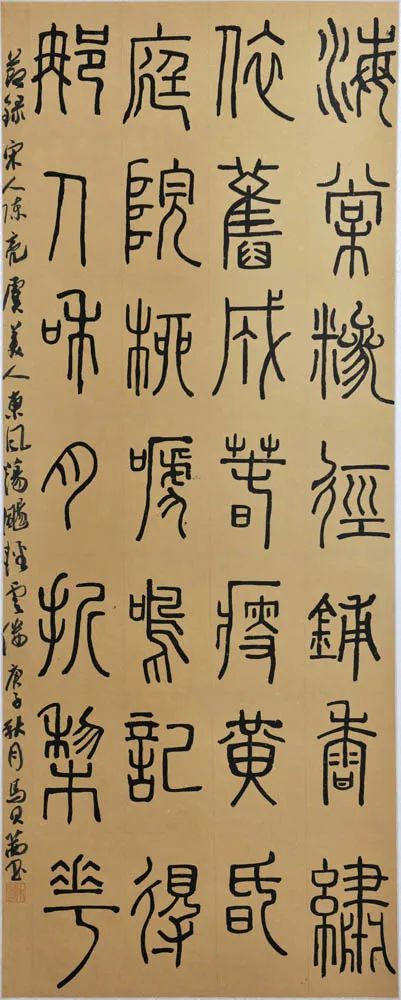 海棠糁徑鋪香繡
依舊成春瘦黃昏
庭院柳嗁鳴記得
那人和月折棃花
節録宋人陳亮虞美人東風蕩颺輕雲縷庚子秋月馬书